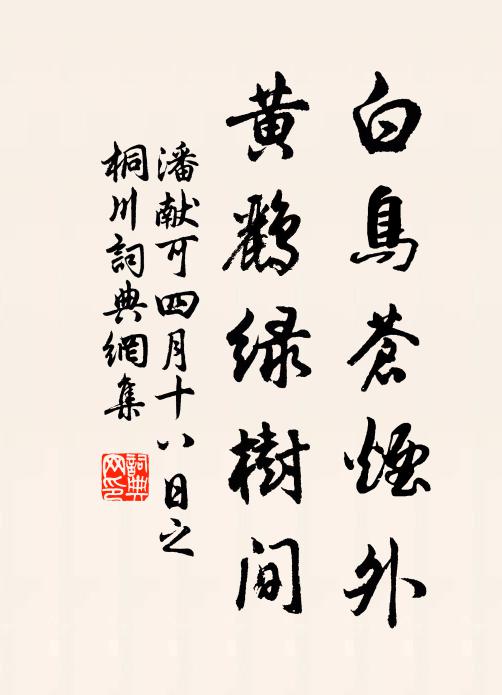 白鳥蒼煙外
黄鸝緑樹間
潘献可四月十八日之
桐川詞典網集
詞典网印